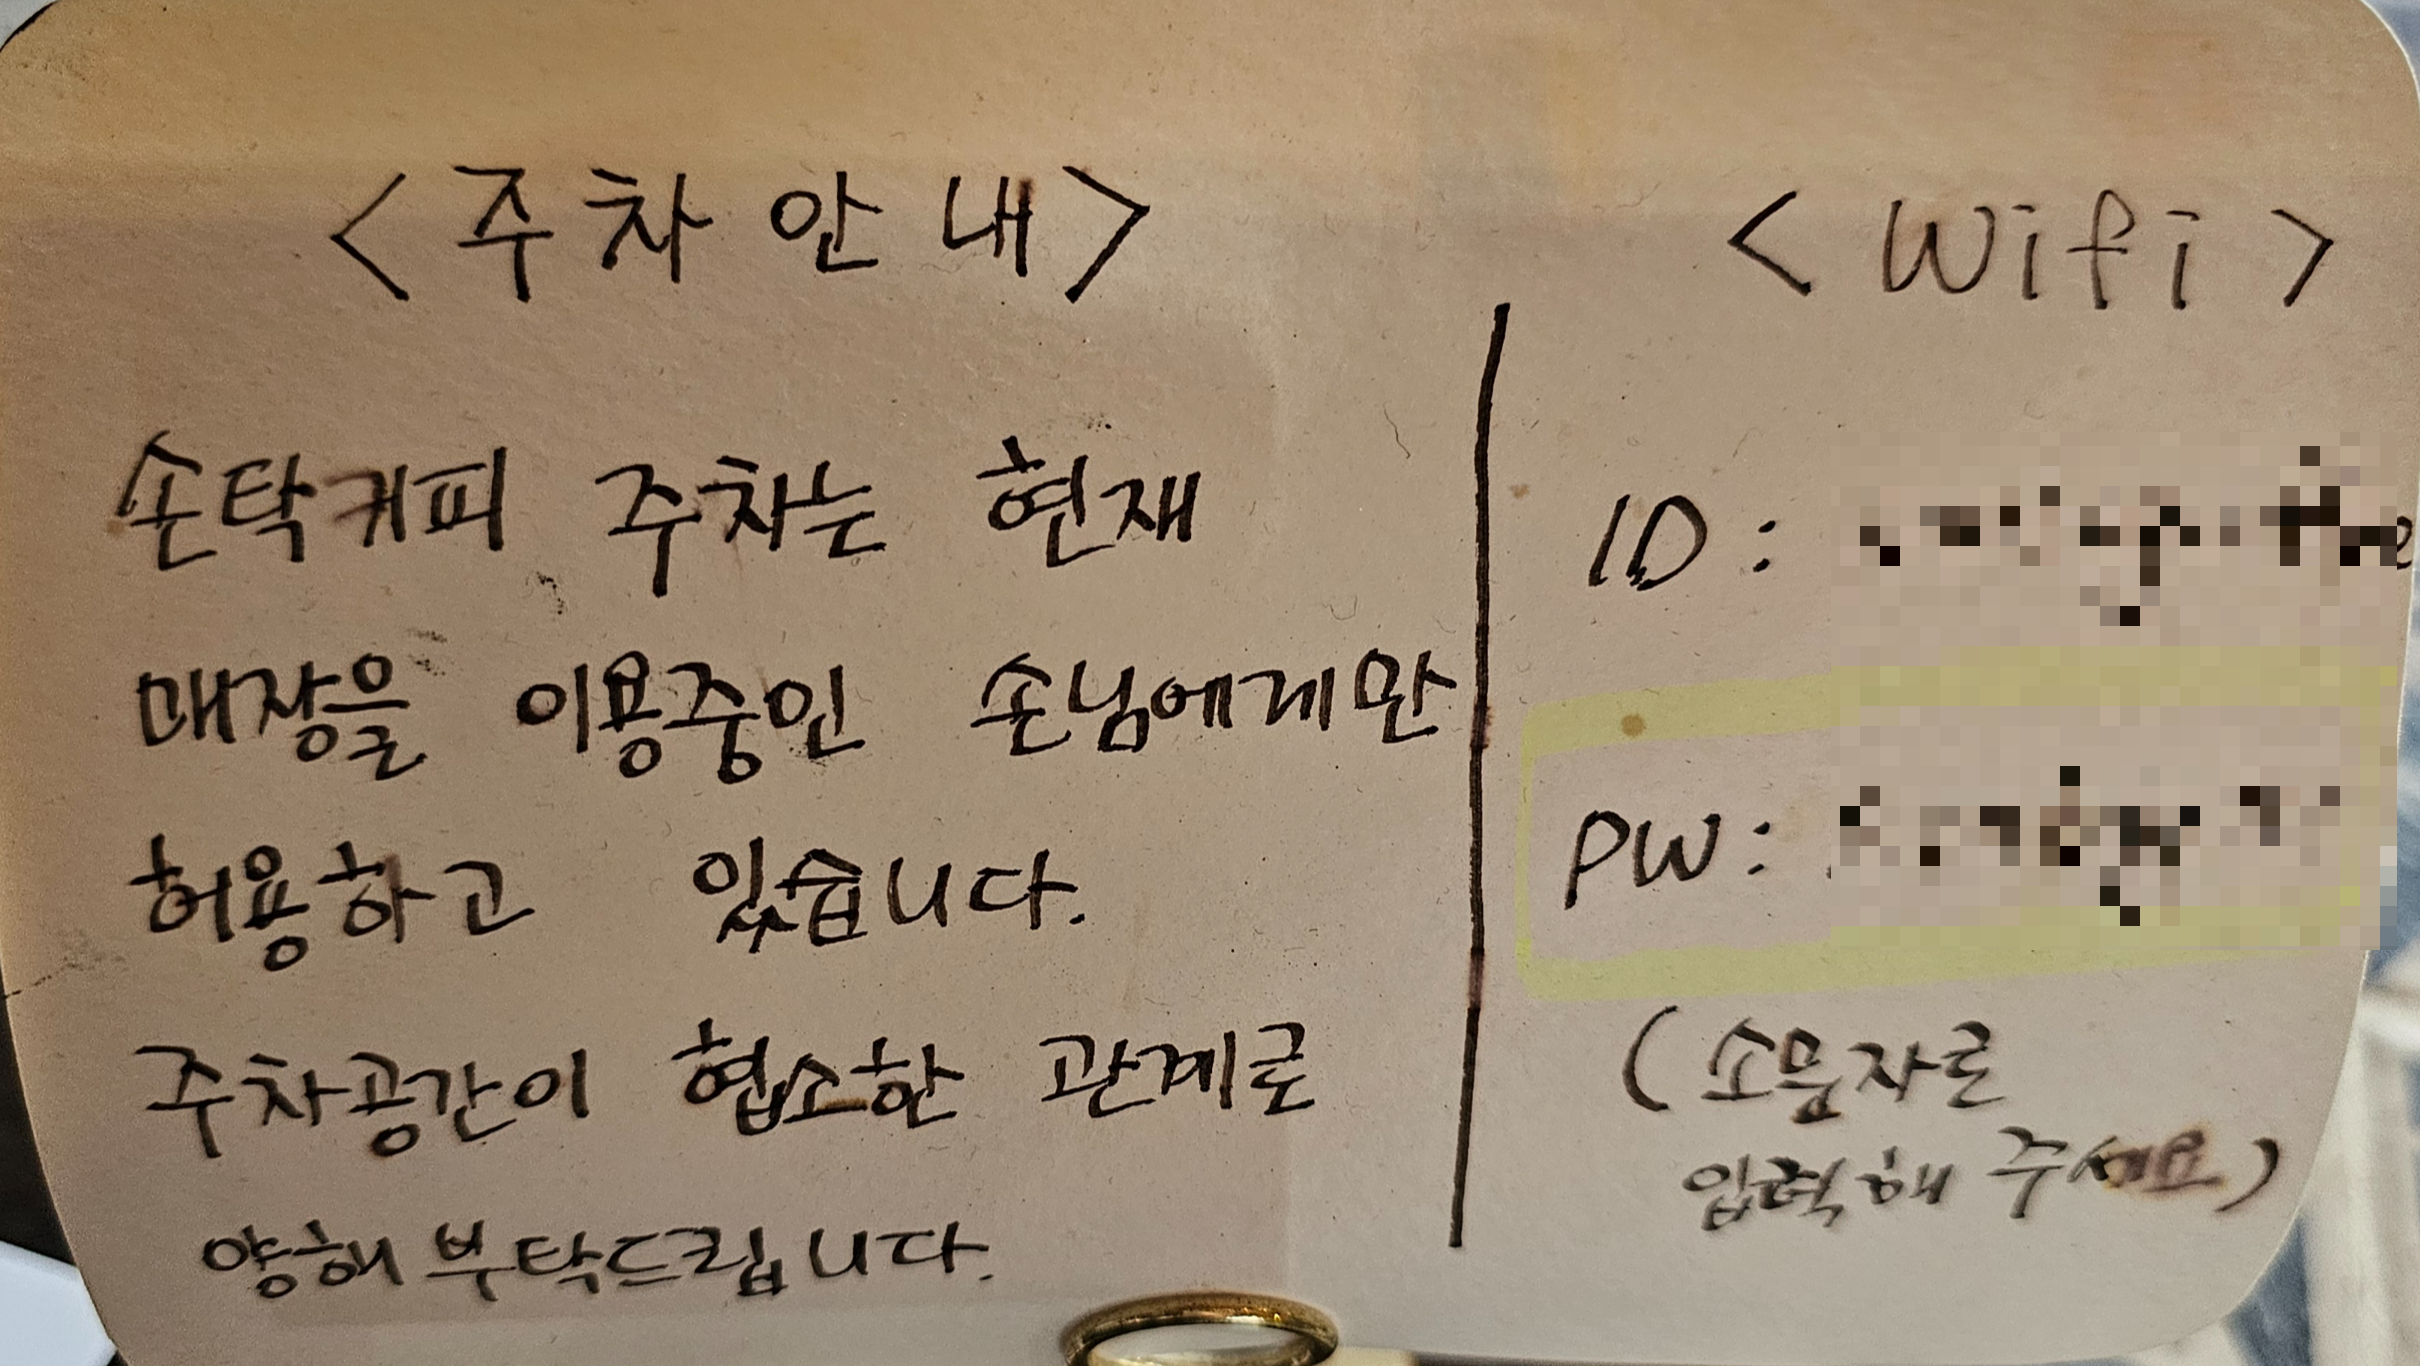 <주차 안내>
손탁커피 주차는 현재
매장을 이용중인 손님에게만
허용하고 있습니다.
주차공간이 협소한 관계로
양해 부탁드립니다.
<Wifi>
ID :
PW :
(소문자로
입력해 주세요)